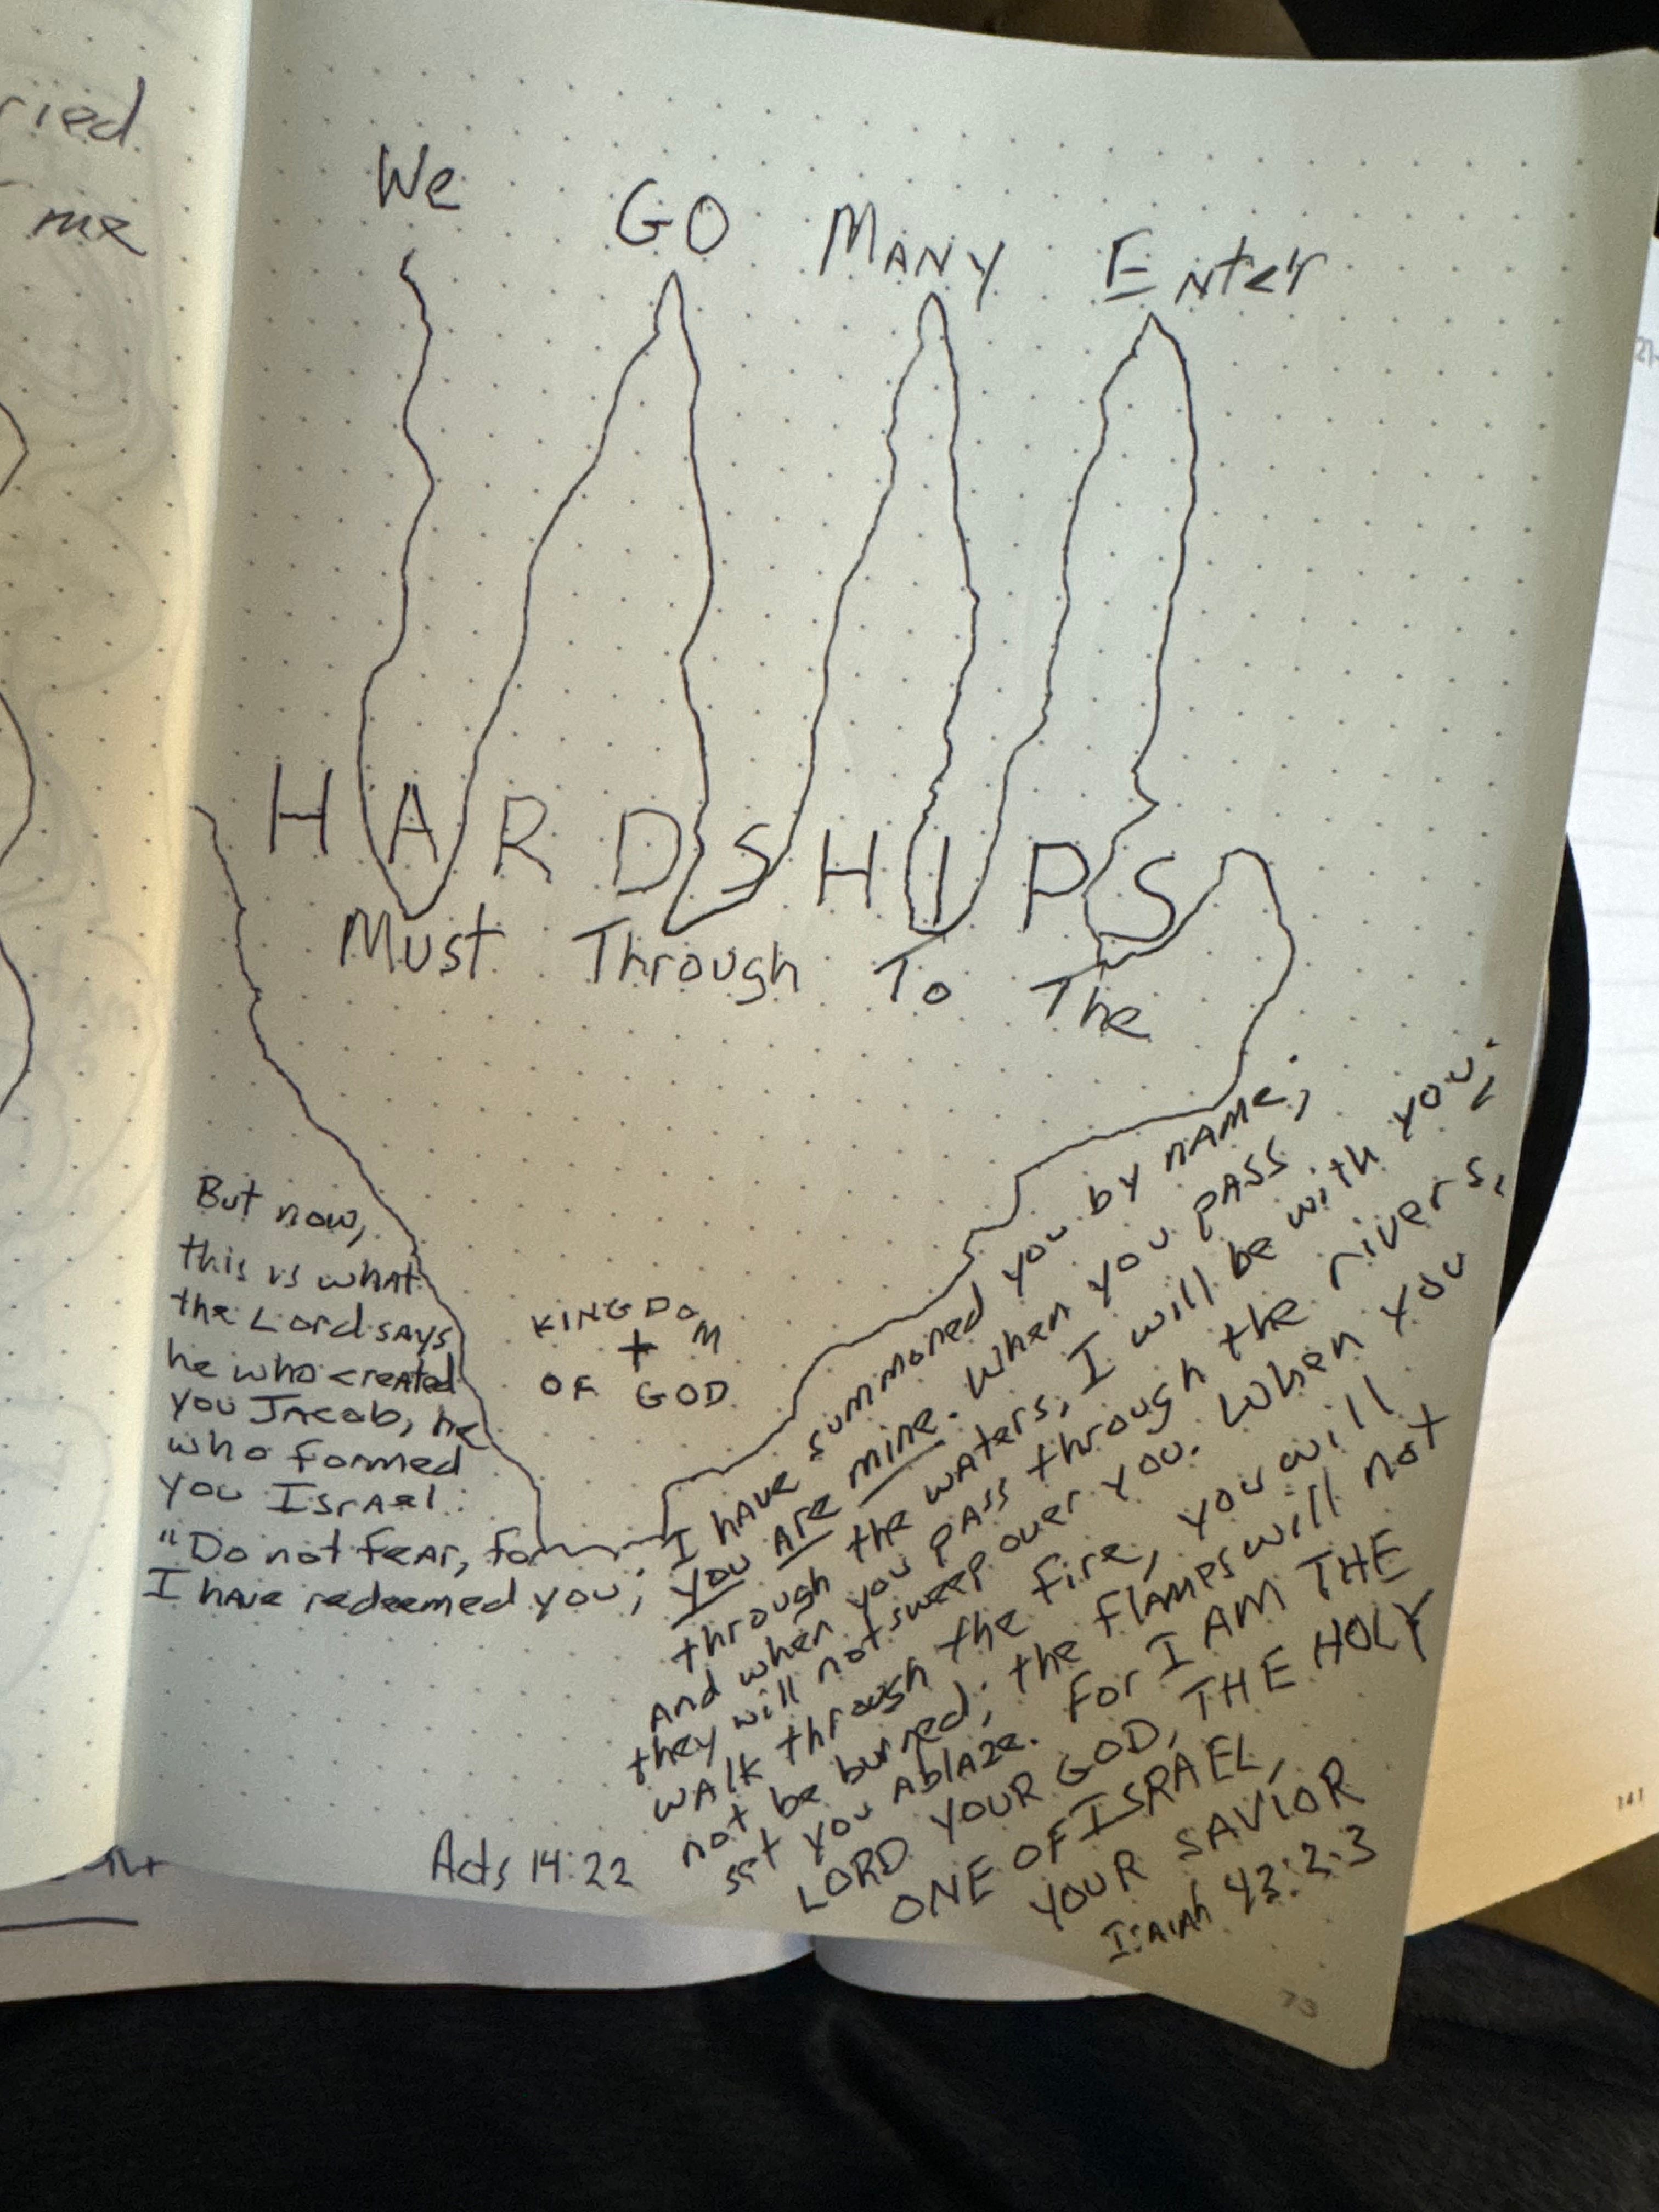 ried
me
We GO MANY Enter
HARDSHIPS
Must Through To The
KINGDOM
OF GOD
But now,
this is what
the Lord says
he who created
you Jacob, he
who formed
you Israel:
"Do not fear, for
I have redeemed you;
I have summoned you by name;
you are mine. When you pass
through the waters, I will be with you;
And when you pass through the rivers,
they will not sweep over you. When you
walk through the fire, you will
not be burned; the flames will not
set you ablaze. For I AM THE
LORD YOUR GOD, THE HOLY
ONE OF ISRAEL,
YOUR SAVIOR
Isaiah 43:2-3
Acts 14:22
73
141